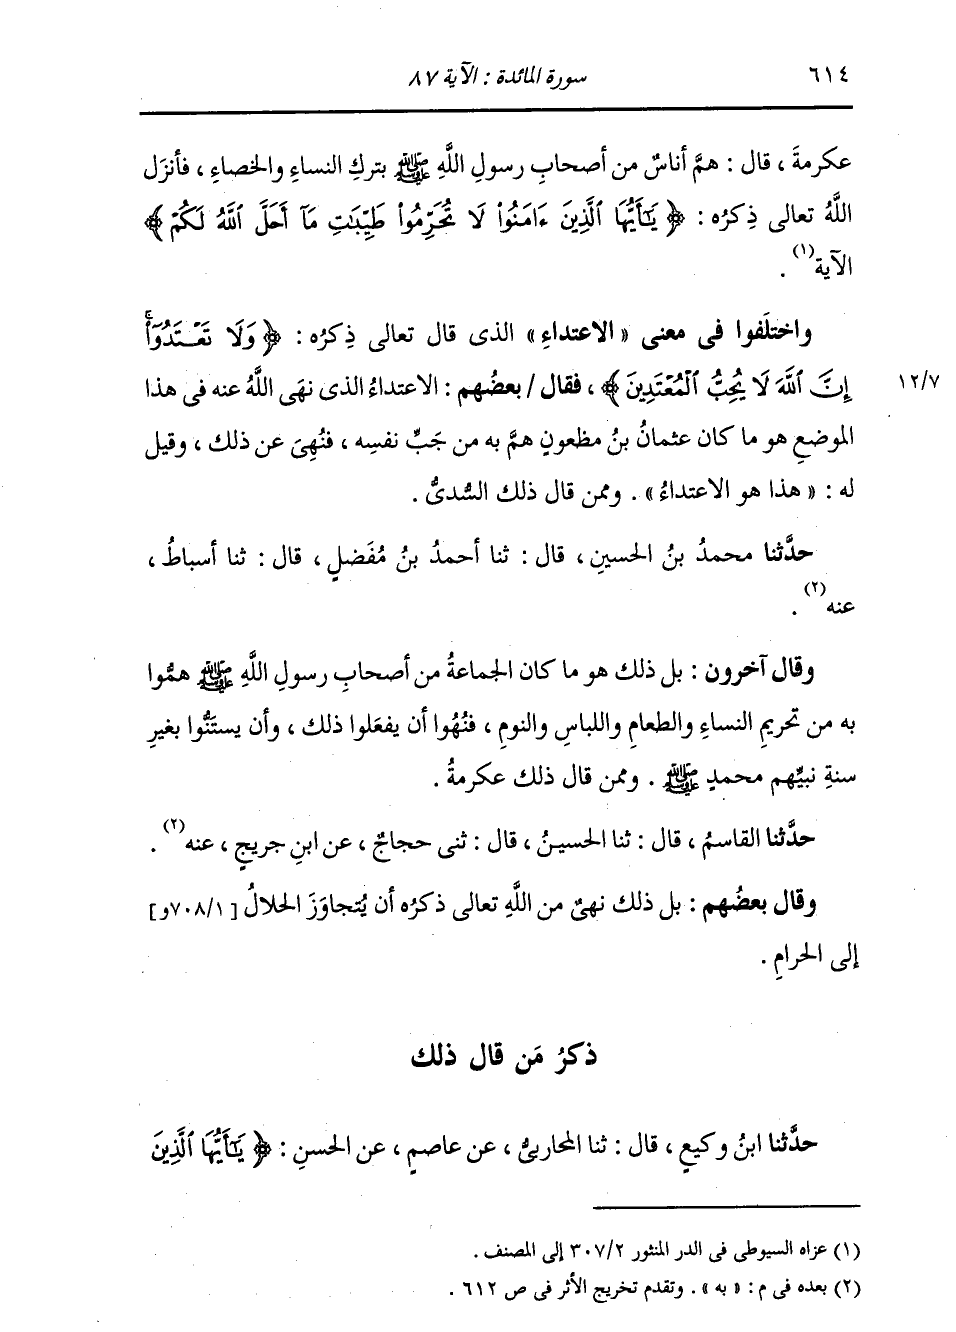 ٦١٤ سورة المائدة : الآية ٨٧
عكرمةَ ، قال : همَّ أناسٌ من أصحابِ رسولِ اللَّهِ ﷺ بتركِ النساءِ والخصاءِ ، فأنزَل
اللَّهُ تعالى ذِكرُه : ﴿ يَٰٓأَيُّهَا ٱلَّذِينَ ءَامَنُوا۟ لَا تُحَرِّمُوا۟ طَيِّبَٰتِ مَآ أَحَلَّ ٱللَّهُ لَكُمْ ﴾
الآية(١) .
واختلَفوا فى معنى « الاعتداءِ » الذى قال تعالى ذِكرُه : ﴿ وَلَا تَعْتَدُوٓا۟ۚ
إِنَّ ٱللَّهَ لَا يُحِبُّ ٱلْمُعْتَدِينَ ﴾ ، فقال / بعضُهم : الاعتداءُ الذى نهَى اللَّهُ عنه فى هذا ١٢/٧
الموضعِ هو ما كان عثمانُ بنُ مظعونٍ همَّ به من جَبِّ نفسِه ، فنُهِىَ عن ذلك ، وقيل
له : « هذا هو الاعتداءُ » . وممن قال ذلك السُّدىُّ .
حدَّثنا محمدُ بنُ الحسينِ ، قال : ثنا أحمدُ بنُ مُفَضلٍ ، قال : ثنا أسباطُ ،
عنه(٢) .
وقال آخرون : بل ذلك هو ما كان الجماعةُ من أصحابِ رسولِ اللَّهِ ﷺ همُّوا
به من تحريمِ النساءِ والطعامِ واللباسِ والنومِ ، فنُهُوا أن يفعَلوا ذلك ، وأن يستَنُّوا بغيرِ
سنةِ نبيِّهم محمدٍ ﷺ . وممن قال ذلك عكرمةُ .
حدَّثنا القاسمُ ، قال : ثنا الحسينُ ، قال : ثنى حجاجٌ ، عن ابنِ جريجٍ ، عنه(٢) .
وقال بعضُهم : بل ذلك نهىٌ من اللَّهِ تعالى ذكرُه أن يُتجاوَزَ الحلالُ [٧٠٨/١و]
إلى الحرامِ .
ذكرُ مَن قال ذلك
حدَّثنا ابنُ وكيعٍ ، قال : ثنا المحاربىُّ ، عن عاصمٍ ، عن الحسنِ : ﴿ يَٰٓأَيُّهَا ٱلَّذِينَ
(١) عزاه السيوطى فى الدر المنثور ٣٠٧/٢ إلى المصنف .
(٢) بعده فى م : « به » . وتقدم تخريج الأثر فى ص ٦١٢ .